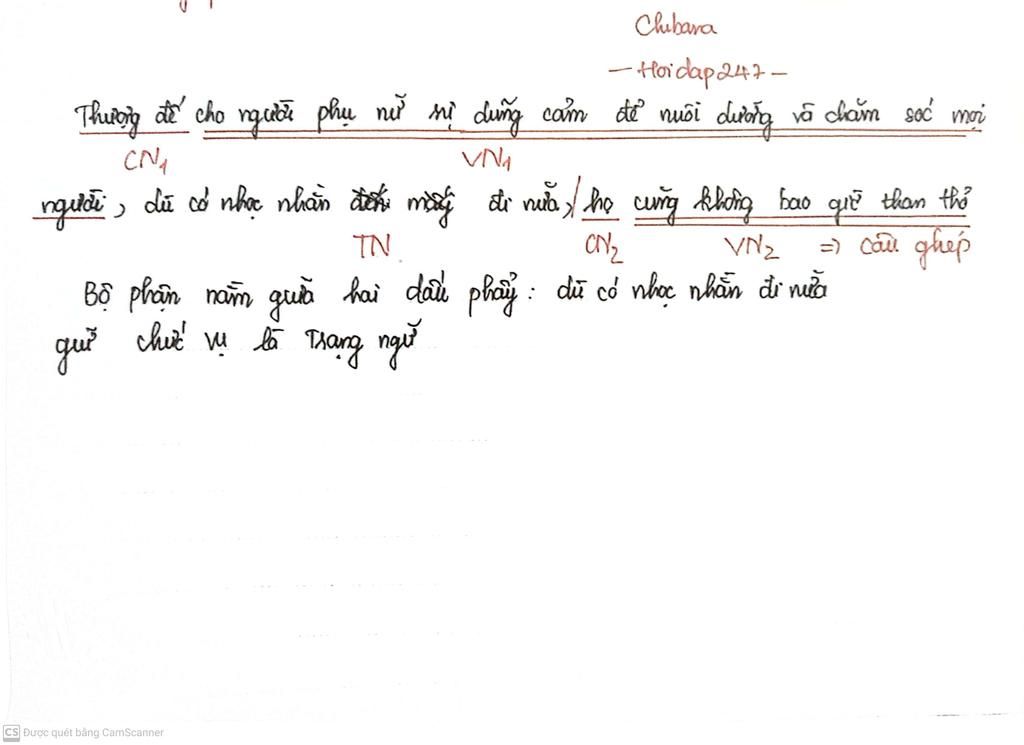 Chibana
- Hoidap247 -
Thượng đế cho người phụ nữ sự dũng cảm để nuôi dưỡng và chăm sóc mọi
CN1 VN1
người, dù có nhọc nhằn đi nữa, / họ cũng không bao giờ than thở
TN CN2 VN2 => câu ghép
Bộ phận nằm giữa hai dấu phẩy : dù có nhọc nhằn đi nữa
giữ chức vụ là Trạng ngữ
CS Được quét bằng CamScanner